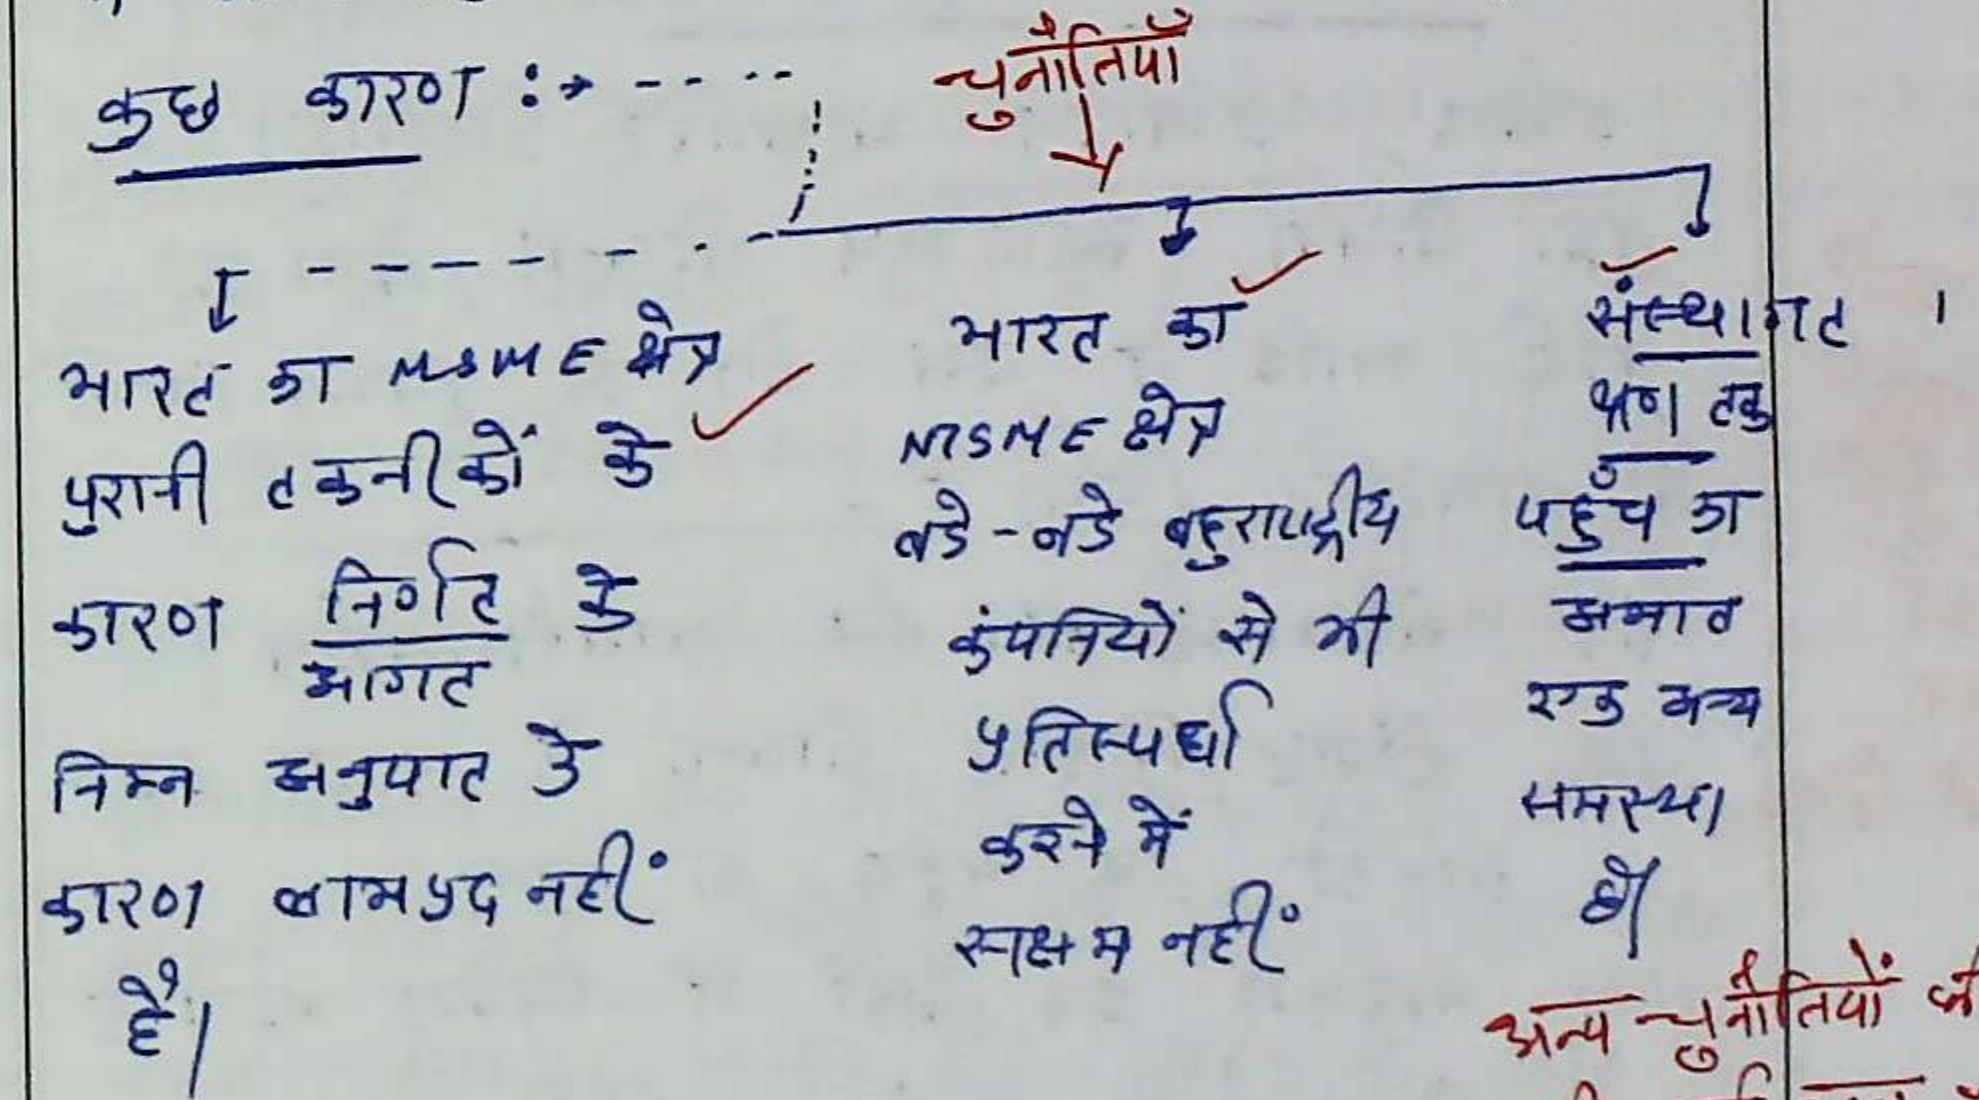 कुछ कारण :→ ----
चुनौतियाँ
भारत का MSME क्षेत्र
पुरानी तकनीकों के
कारण निर्गत के
आगत
निम्न अनुपात के
कारण लाभप्रद नहीं
है।
भारत का
MSME क्षेत्र
बडे-बडे बहुराष्ट्रीय
कंपनियों से भी
प्रतिस्पर्धा
करने में
सक्षम नहीं
संस्थागत ।
ऋण तक
पहुँच का
अभाव
एक अन्य
समस्या
है।
अन्य चुनौतियों